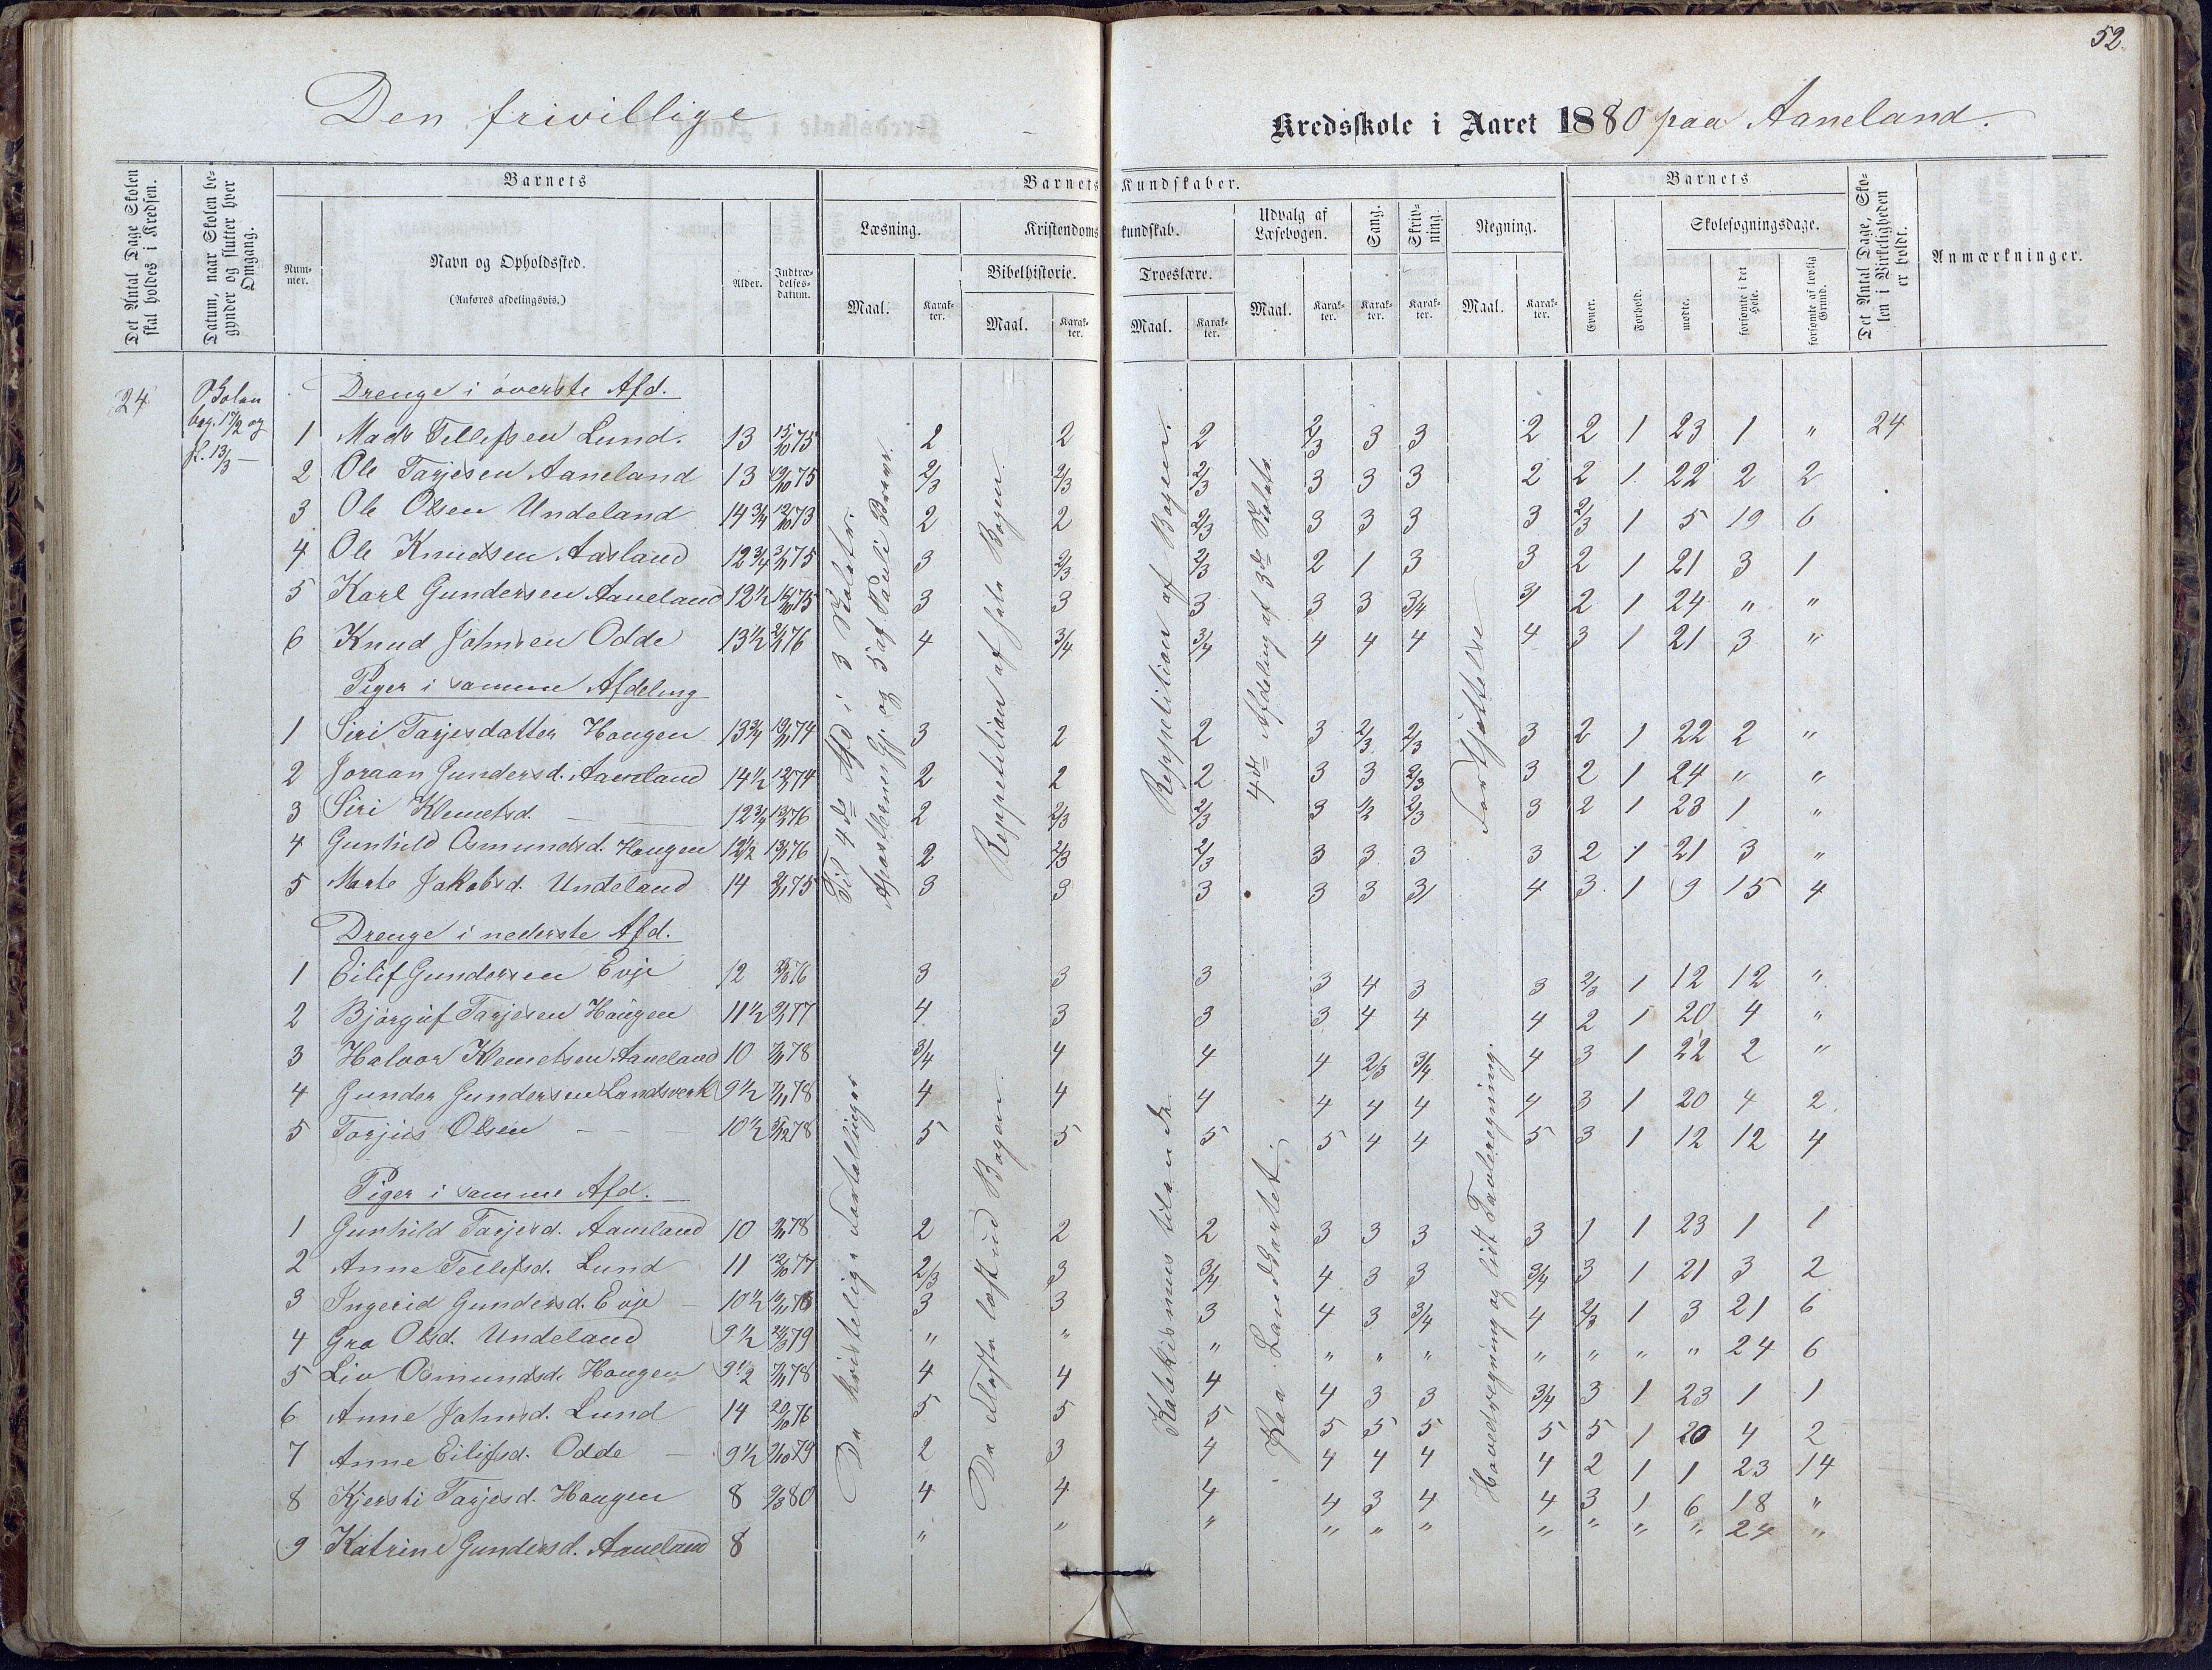 52.
Den frivillige Kredsskole i Aaret 1880 paa Aaneland.
Det Antal Dage Skolen skal holdes i Kredsen.
Datum, naar Skolen begynder og slutter hver Omgang.
Barnets
Nummer.
Navn og Opholdssted.
(Anføres afdelingsvis.)
Alder.
Indtrædelsesdatum.
Barnets Kundskaber.
Læsning.
Maal.
Karakter.
Kristendomskundskab.
Bibelhistorie.
Maal.
Karakter.
Troeslære.
Maal.
Karakter.
Udvalg af Læsebogen.
Maal.
Karakter.
Sang.
Karakter.
Skrivning.
Karakter.
Regning.
Maal.
Karakter.
Barnets
Evner.
Forhold.
Skolesøgningsdage.
mødte.
forsømte i det Hele.
forsømte af lovlig Grund.
Det Antal Dage, Skolen i Virkeligheden er holdt.
Anmærkninger.
24
beg. 17/2 og
sl. 13/3 —
Drenge i øverste Afd.
1 Mads Tellefsen Lund. 13 15/10 75 2 2 2 2/3 3 3 2 2 1 23 1 " 24
2 Ole Tarjesen Aaneland 13 75 2/3 2/3 2/3 3 3 3 2 2 1 22 2 2
3 Ole Olsen Undeland 14 3/4 73 2 2 2/3 3 3 3 3 2/3 1 5 19 6
4 Ole Knudsen Aasland 12 3/4 75 3 2/3 2/3 2 1 3 3 2 1 21 3 1
5 Karl Gundersen Aaneland 12 1/2 75 3 3 3 3 3 3/4 3 2 1 24 " "
6 Knud Johnsen Odde 13 1/2 76 4 3/4 3/4 4 4 4 4 3 1 21 3 "
Piger i samme Afdeling
1 Siri Tarjesdatter Haugen 13 3/4 74 3 2 2 3 2/3 2/3 3 2 1 22 2 "
2 Joraan Gundersd. Aaneland 14 1/2 74 2 2 2 3 3 2/3 3 2 1 24 " "
3 Siri Klemetsd. — — 12 3/4 76 2 2/3 2/3 3 1/2 2/3 3 2 1 23 1 "
4 Gunhild Osmundsd. Haugen 12 1/2 76 2 2/3 2/3 3 3 3 3 2 1 21 3 "
5 Marte Jakobsd. Undeland 14 75 3 3 3 3 3 3 4 3 1 9 15 4
Til 4de Afd i 3 og 5 af Pauli Breve.
Reppetition af hele Bogen.
Reppetition af Bogen.
4de Afdeling af 3de
Fortsættelse
Drenge i nederste Afd.
1 Eilif Gundersen Evje 12 76 3 3 3 3 4 3 3 2/3 1 12 12 "
2 Bjørguf Tarjesen Haugen 11 1/2 77 4 3 3 3 4 4 4 2 1 20 4 "
3 Halvor Klemetsen Aaneland 10 78 3/4 4 4 4 2/3 3/4 4 3 1 22 2 "
4 Gunder Gundersen Landsverk 9 1/2 78 4 4 4 4 4 4 4 3 1 20 4 2
5 Torjus Olsen — — — 10 1/2 78 5 5 5 5 4 4 5 3 1 12 12 4
Piger i samme Afd.
1 Gunhild Tarjesd. Aaneland 10 78 2 2 2 3 3 3 3 1 1 23 1 1
2 Anne Tellefsd. Lund 11 12/10 77 2/3 3 3/4 4 3 3 3/4 3 1 21 3 2
3 Ingerid Gundersd. Evje — 10 1/2 3 3 3 4 3 3/4 4 2/3 1 3 21 6
4 Gro Olsd. Undeland 9 1/2 79 " " " " " " " " " " 24 6
5 Liv Osmundsd. Haugen 9 1/2 78 4 4 4 4 3 3 3/4 3 1 23 1 1
6 Anne Johnsd. Lund 14 20/10 76 5 5 5 5 5 5 5 5 1 20 4 2
7 Anne Eilifsd. Odde — 9 1/2 79 2 3 4 4 4 4 4 2 1 1 23 14
8 Kjersti Tarjesd. Haugen 8 80 4 4 4 4 3 4 4 3 1 6 18 "
9 Katrine Gundersd. Aaneland 8 " " " " " " " " " " 24 "
De kristelige Fortællinger
De fleste læst ud Bogen
Katekismus tilende.
Paa Landkartet.
Hovedregning og lidt Tavleregning.